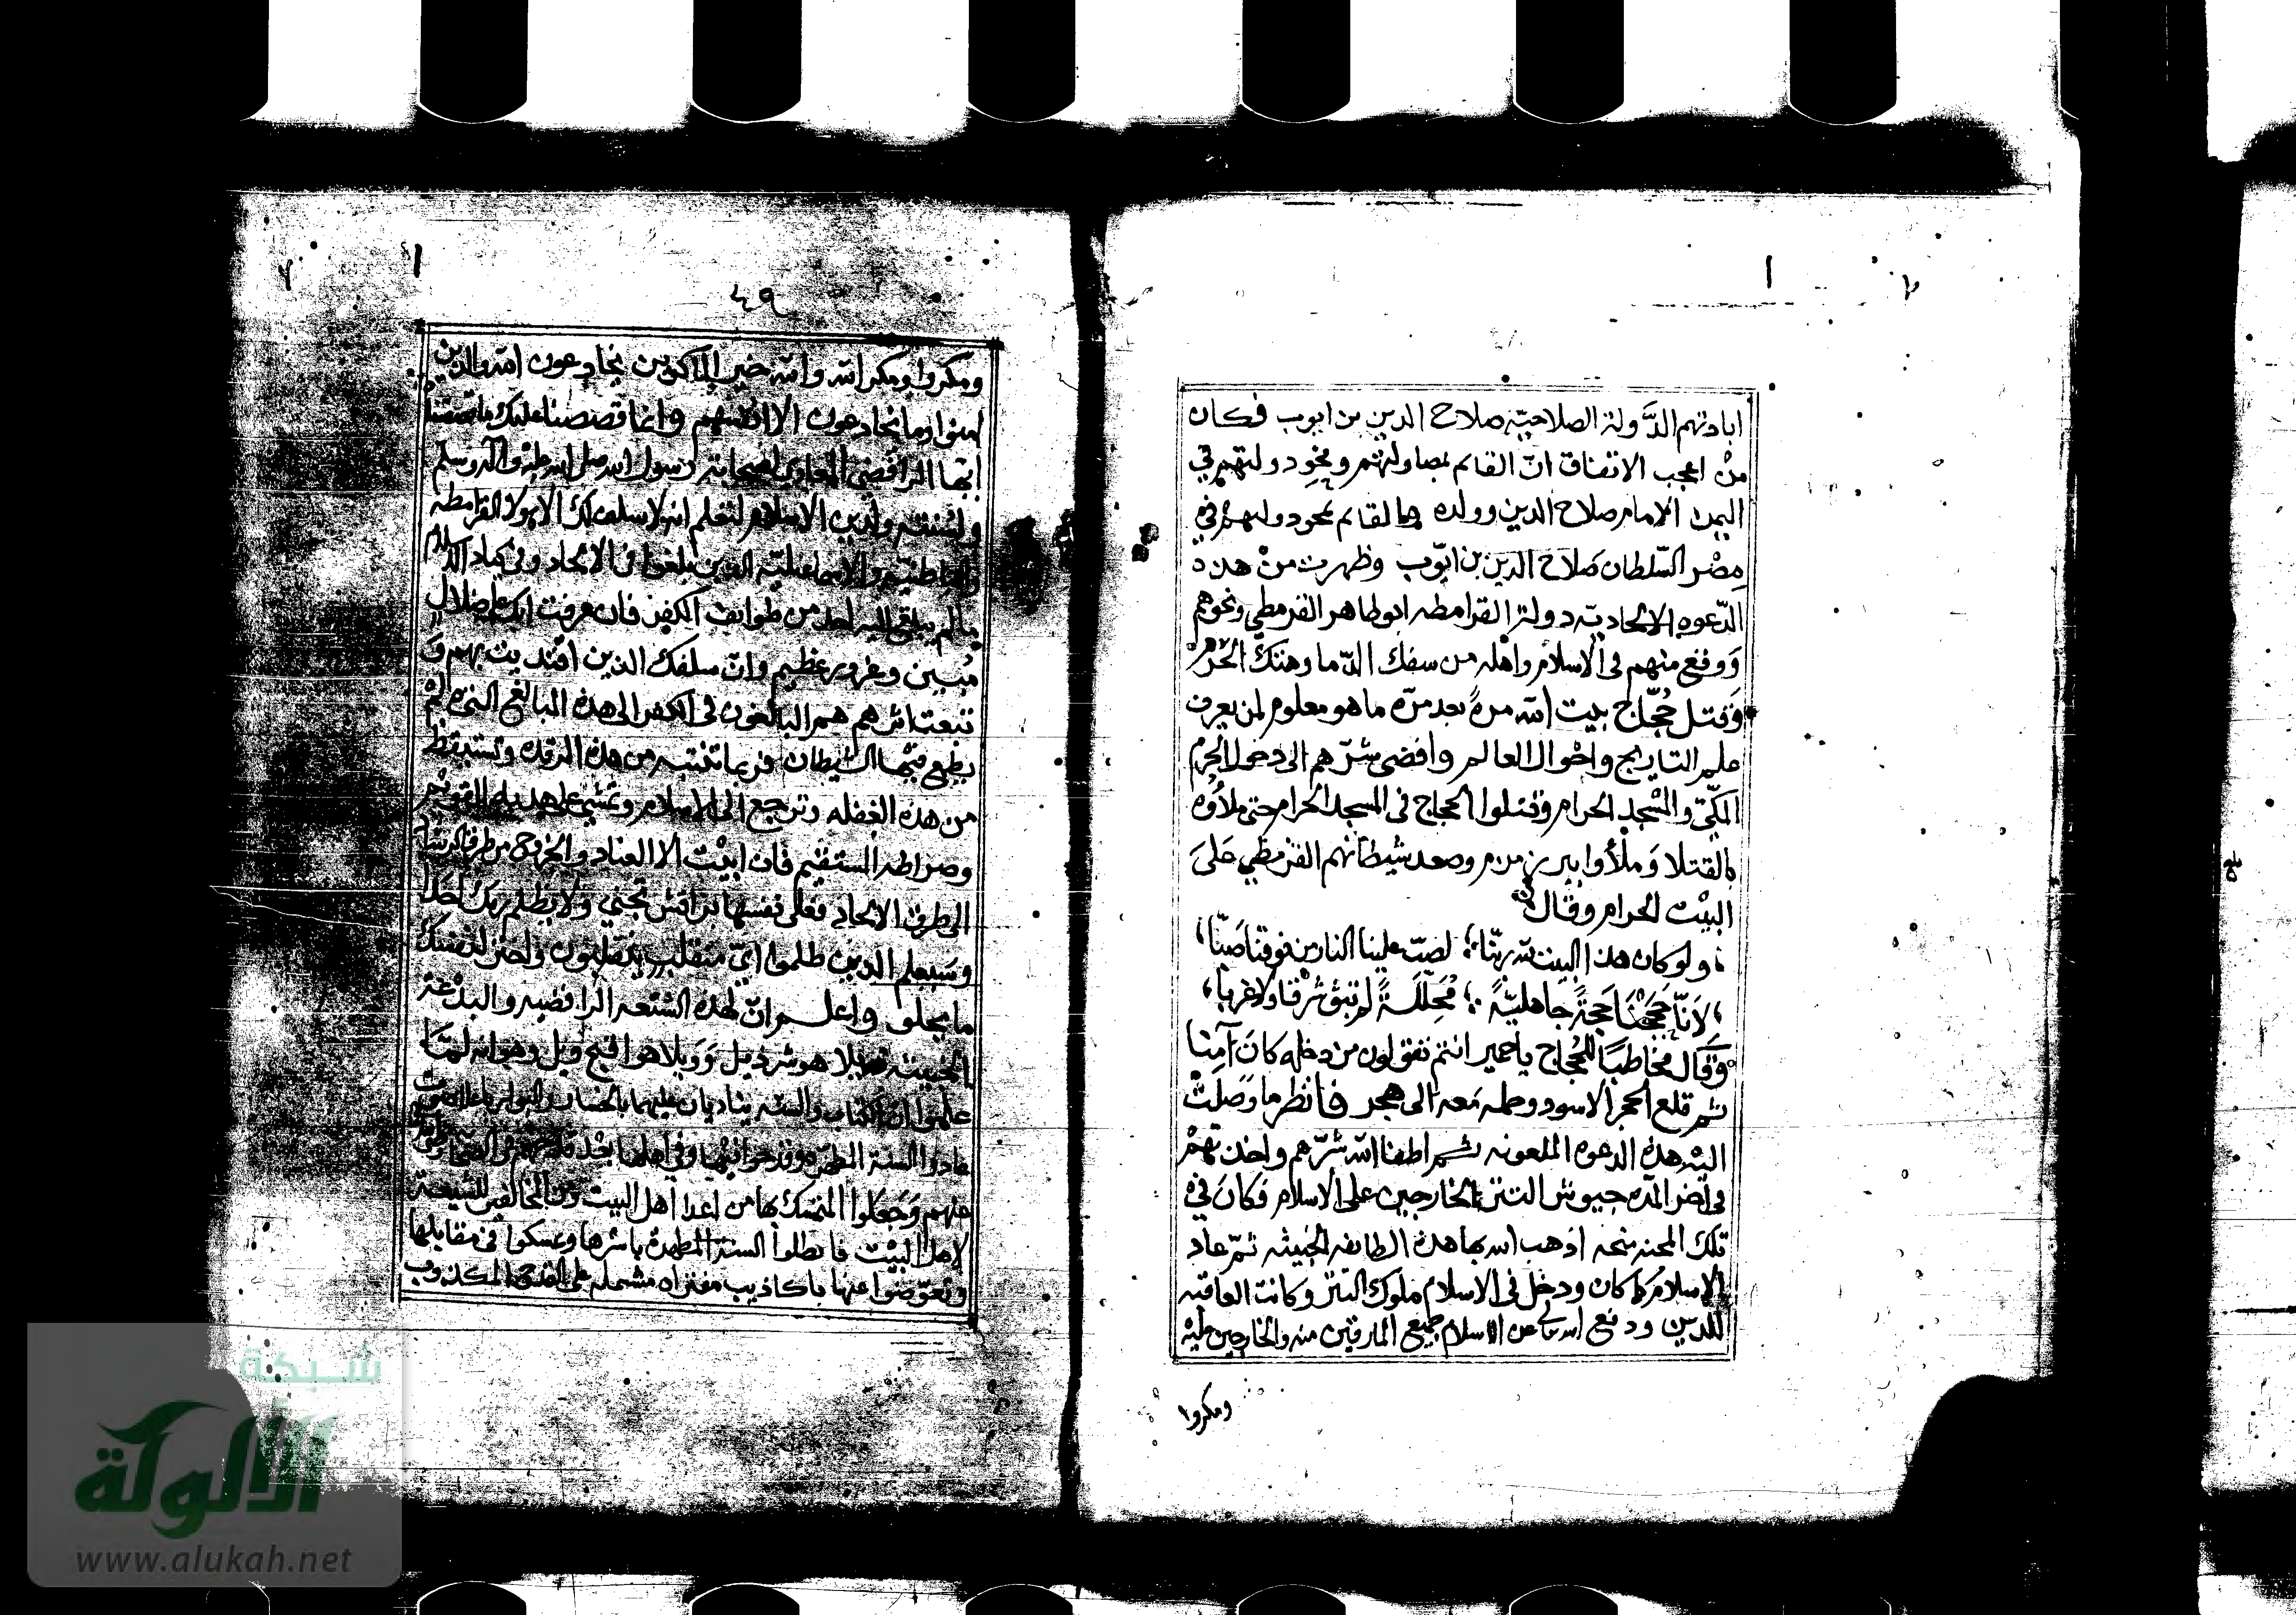 ابادتهم الدَّولة الصلاحيّة صلاح الدين بن ايوب فكان
منْ اعجب الاتفاق انّ القائم بمصاولتهم ومحو دولتهم في
اليمن الامام صلاح الدين وولده كما القائم بمحو دولتهم في
مصْر السّلطان صَلاح الدين بن ايّوب وظهرت منْ هذه
الدّعوه الالحاديّه دولة القرامطه ابو طاهر القرمطي ونحوهم
وَوقع منهم في الاسلام واهْله من سفك الدّما وهتك الحُرم
وَقتل حُجّاج بيت الله مرهً بعد مرّه ما هو معلوم لمن يعرف
علم التاريخ واحْوال العالم وافضى شرّهم الى دخول الحرم
المكّي والمسْجد الحرام وقتلوا الحجاج في المسجد الحرام حتى ملاؤه
بالقتلا وَملأوا بير زمزم وصعد شيطانهم القرمطي عَلىَ
البيْت الحرام وقال
ولو كان هذا البيت لله ربّنا لصبّ علينا النار من فوقنا صَبّا
لانّا حَججْنَا حَجةً جاهليّةً مُحِلَلَةً لم تبق شرْقا ولا غربا
وَقَال مخاطبًا للحُجاج ياحمير انتم تقولون من دخله كانَ آمنا
ثم قلع الحجر الاسود وحمله مَعه الى هجر فانظر ما وَصَلتْ
اليْه هذه الدعوه الملعونه ثم اطفا الله شرّهم واخذتهمْ
في آخر المدّه جيوش التتر الخارجين على الاسلام فكانَ في
تلك المحنه منحه اذهب الله بها هذه الطايفه الخبيثه ثمّ عاد
الاسلام كما كان ودخَل في الاسلام ملوك التتر وكانت العاقبه
للدين ودفع الله تعالى عن الاسلام جميع المارقين منه والخارجين عليْه
ومكروا
٤٩
ومكروا ومكر الله والله خير الماكرين يخادعون الله والذين
امنوا وما يخادعون الا انفسهم وانما قصصنا عليك ما قصصنا
ايّها الرافضي المعادي لصحابة رسول الله صلى الله عليه وآله وسلم
ولسُنته ولدين الاسلام لتعلم انه لا سلف لك الا هولا القرامطه
والباطنيّه والاسماعيليّه الذين بلغوا في الالحاد وفي كياد الاسلام
ما لم يبلغ اليه احد من طوايف الكفر فان عرفت انك على ضلال
مُبين وغرور عظيم وانّ سلفك الذين اقتديت بهم وَ
تبعت اثرهم هم البالغون في الكفر الى هذه المبالغ التي لمْ
يطمع فيها الشيطان فربما تنتبه من هذه الرقده وتستيقظ
من هذه الغفله وترجع الى الاسلام وتمشي على هديه القويم
وصراطه المستقيم فان ابيْت الا العناد والخروج من طرق الرشاد
الى طرق الالحاد فعلى نفسها براقش تجني ولا يظلم ربّك احدًا
وسَيعلم الذين ظلموا ايّ منقلب ينقلبون واختر لنفسك
ما يحلو واعلم انّ لهذه الشنعه الرافضيه والبدْعة
الخبيثه ذيلا هو شر ذيل وَوَيلا هو اقبح ويل وهو انه لمّا
علموا ان الكتاب والسنه يناديان عليهما بالخسار والبوار
عادوا السنة المطهره وقدحوا فيها وفي اهلها بعْد قدحهم في الصحابه رضي الله
عنهم وَجَعَلوا المتمسك بها من اعدا اهل البيت ومن المخالفين للشيعة
لاهل البيْت فابطلوا السنة المطهرة باسْرها وتمسكوا في مقابلها
وتعوّضوا عنها باكاذيب مفتراه مشتمله على القدح المكذوب
شبكة
الألوكة
www.alukah.net